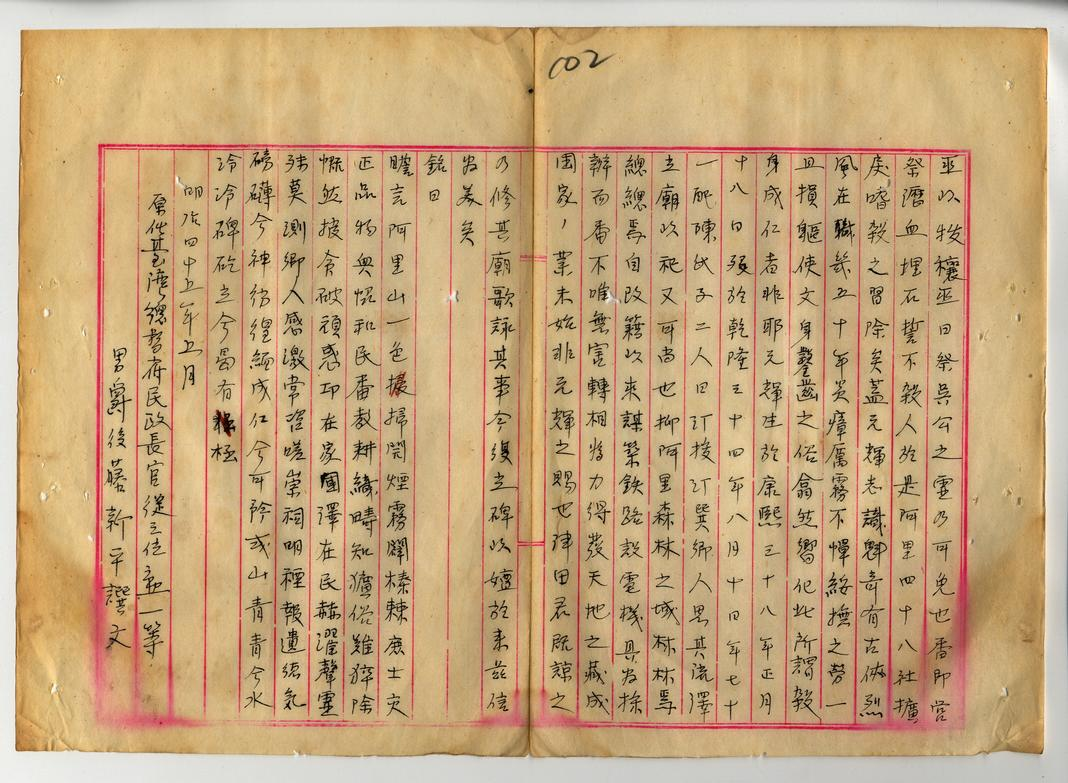 002
巫以拔穰巫曰祭吳公之靈乃可免也番即営
祭瀝血埋石誓不殺人於是阿里四十八社擴
戾嗜殺之習除矣蓋元輝志識魁奇有古俠烈
風在職幾五十年炎瘴厲霧不憚綏撫之勞一
旦損軀使文身鑿齒之俗翕然嚮化此所謂殺
身成仁者非耶元輝生於康熙三十八年正月
十八日歿於乾隆三十四年八月十日年七十
一配陳氏子二人曰汀梭汀巽鄉人思其流澤
立廟以祀又可尚也抑阿里森林之域林林焉
總總焉自改籍以來謀築鉄路設電機具為採
辦而番不唯無害轉相為力得發天地之藏成
國家ノ業未始非元輝之賜也津田君既諒之
乃修其廟歌詠其事今復立碑以嬗於來茲信
為美矣
銘曰
瞻言阿里山一色擴掃閉煙霧闢榛棘鹿士灾
正品物與惺和民番教耕績疇知獷俗難猝除
慨然披肏破頑惑卬在家國澤在民赫濯聲靈
殊莫測鄉人感激常咨嗟崇祠明禋報遺德氣
磅礡兮神彷徨緬成仁兮可矜式山青青兮水
泠泠碑矻立兮曷有極
明治四十五年五月
原任臺灣總督府民政長官從三位勲一等
男爵後藤新平譔文